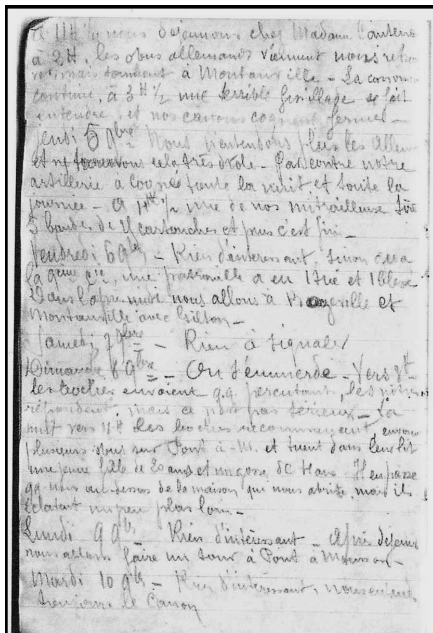 à 11H ½ nous déjeunons chez Madame
à 2H, les obus allemands viennent nous
mais tombent à Montauville - La
continue, à 3H ½ une terrible fusillade se fait
entendre, et nos canons cognent ferme -
Jeudi 5 9bre Nous n'entendons plus les
et trouvons cela très drôle - Par contre notre
artillerie a cogné toute la nuit et toute la
journée - A ½ une de nos mitrailleuse tire
3 bandes de cartouches et puis c'est fini -
Vendredi 6 9bre - Rien d'intéressant, sinon que
la 9ème Cie, une patrouille a eu 1 tué et 1 blessé
Dans l'après midi nous allons à et
Montauville avec Gilton -
Samedi 7 9bre - Rien à signaler
Dimanche 8 9bre - On s'emmerde - Vers 8H
les boches envoient qq percutants, les nôtres
répondent, mais ce n'est pas sérieux - La
nuit vers 11H les boches recommencent, envoient
plusieurs obus sur Pont à -M. et tuent dans leur lit
une jeune fille de 20 ans et un gosse de ans Il en passe
qq uns au dessus de la maison qui nous abrite, mais ils
éclatent un peu plus loin -
Lundi 9 9bre - Rien d'intéressant - Après déjeuner
nous allons faire un tour à Pont à Mousson -
Mardi 10 9bre - Rien d'intéressant, nous
toujours le Canon